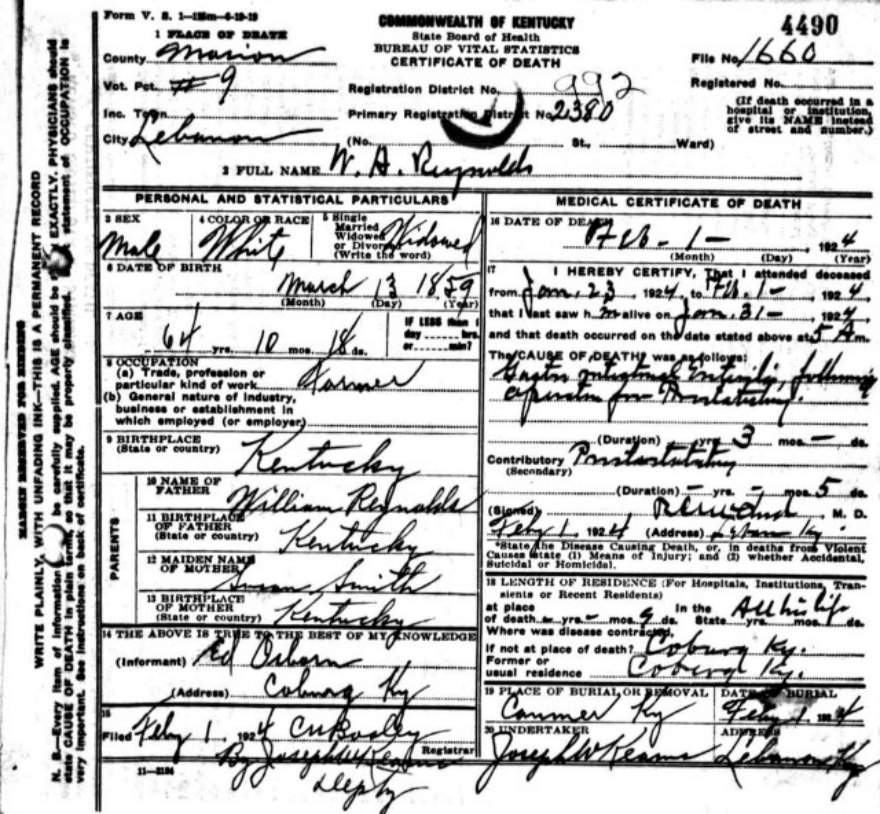 Form V. S. 1—125m—6-19-19
COMMONWEALTH OF KENTUCKY
State Board of Health
BUREAU OF VITAL STATISTICS
CERTIFICATE OF DEATH
4490
File No. 1660
Registered No.
(If death occurred in a
hospital or institution,
give its NAME instead
of street and number.)
1 PLACE OF DEATH
County Marion
Vot. Pct. #9
Inc. Town
City Lebanon
Registration District No. 992
Primary Registration District No. 2380
(No. St., Ward)
2 FULL NAME W. A. Reynolds
PERSONAL AND STATISTICAL PARTICULARS
3 SEX
Male
4 COLOR OR RACE
White
5 Single
Married
Widowed
or Divorced
(Write the word)
Widowed
6 DATE OF BIRTH
March 13 1859
(Month) (Day) (Year)
7 AGE
64 yrs. 10 mos. 18 ds.
IF LESS than 1
day hrs.
or min?
8 OCCUPATION
(a) Trade, profession or
particular kind of work Farmer
(b) General nature of industry,
business or establishment in
which employed (or employer)
9 BIRTHPLACE
(State or country) Kentucky
PARENTS
10 NAME OF
FATHER William Reynolds
11 BIRTHPLACE
OF FATHER
(State or country) Kentucky
12 MAIDEN NAME
OF MOTHER Susan Smith
13 BIRTHPLACE
OF MOTHER
(State or country) Kentucky
14 THE ABOVE IS TRUE TO THE BEST OF MY KNOWLEDGE
(Informant) Ed Osborn
(Address) Coburg Ky
15
Filed Feby 1, 1924
Registrar
By Joseph W Kearns
Deputy
11—2184
MEDICAL CERTIFICATE OF DEATH
16 DATE OF DEATH
Feb - 1 - 1924
(Month) (Day) (Year)
17 I HEREBY CERTIFY, That I attended deceased
from Jan. 23, 1924, to Feb. 1 - 1924,
that I last saw h m alive on Jan. 31 - 1924,
and that death occurred on the date stated above at 5 A m.
The CAUSE OF DEATH was as follows:
Gastro intestinal following
operation for
(Duration) yrs. 3 mos. - ds.
Contributory
(Secondary)
(Duration) - yrs. - mos. 5 ds.
(Signed) M. D.
Feby 1, 1924 (Address) Lebanon Ky.
*State the Disease Causing Death, or, in deaths from Violent
Causes state (1) Means of Injury; and (2) whether Accidental,
Suicidal or Homicidal.
18 LENGTH OF RESIDENCE (For Hospitals, Institutions, Tran-
sients or Recent Residents)
at place In the All his life
of death - yrs. - mos. 9 ds. State yrs. mos. ds.
Where was disease contracted,
If not at place of death? Coburg Ky.
Former or
usual residence Coburg Ky.
19 PLACE OF BURIAL OR REMOVAL
Canmer Ky
DATE OF BURIAL
Feby 1 1924
20 UNDERTAKER
Joseph W Kearns
ADDRESS
Lebanon Ky
MARGIN RESERVED FOR BINDING
WRITE PLAINLY, WITH UNFADING INK—THIS IS A PERMANENT RECORD
N. B.—Every item of information be carefully supplied. AGE should be EXACTLY. PHYSICIANS should
state CAUSE OF DEATH in plain terms, so that it may be properly classified. statement of OCCUPATION is
very important. See instructions on back of certificate.